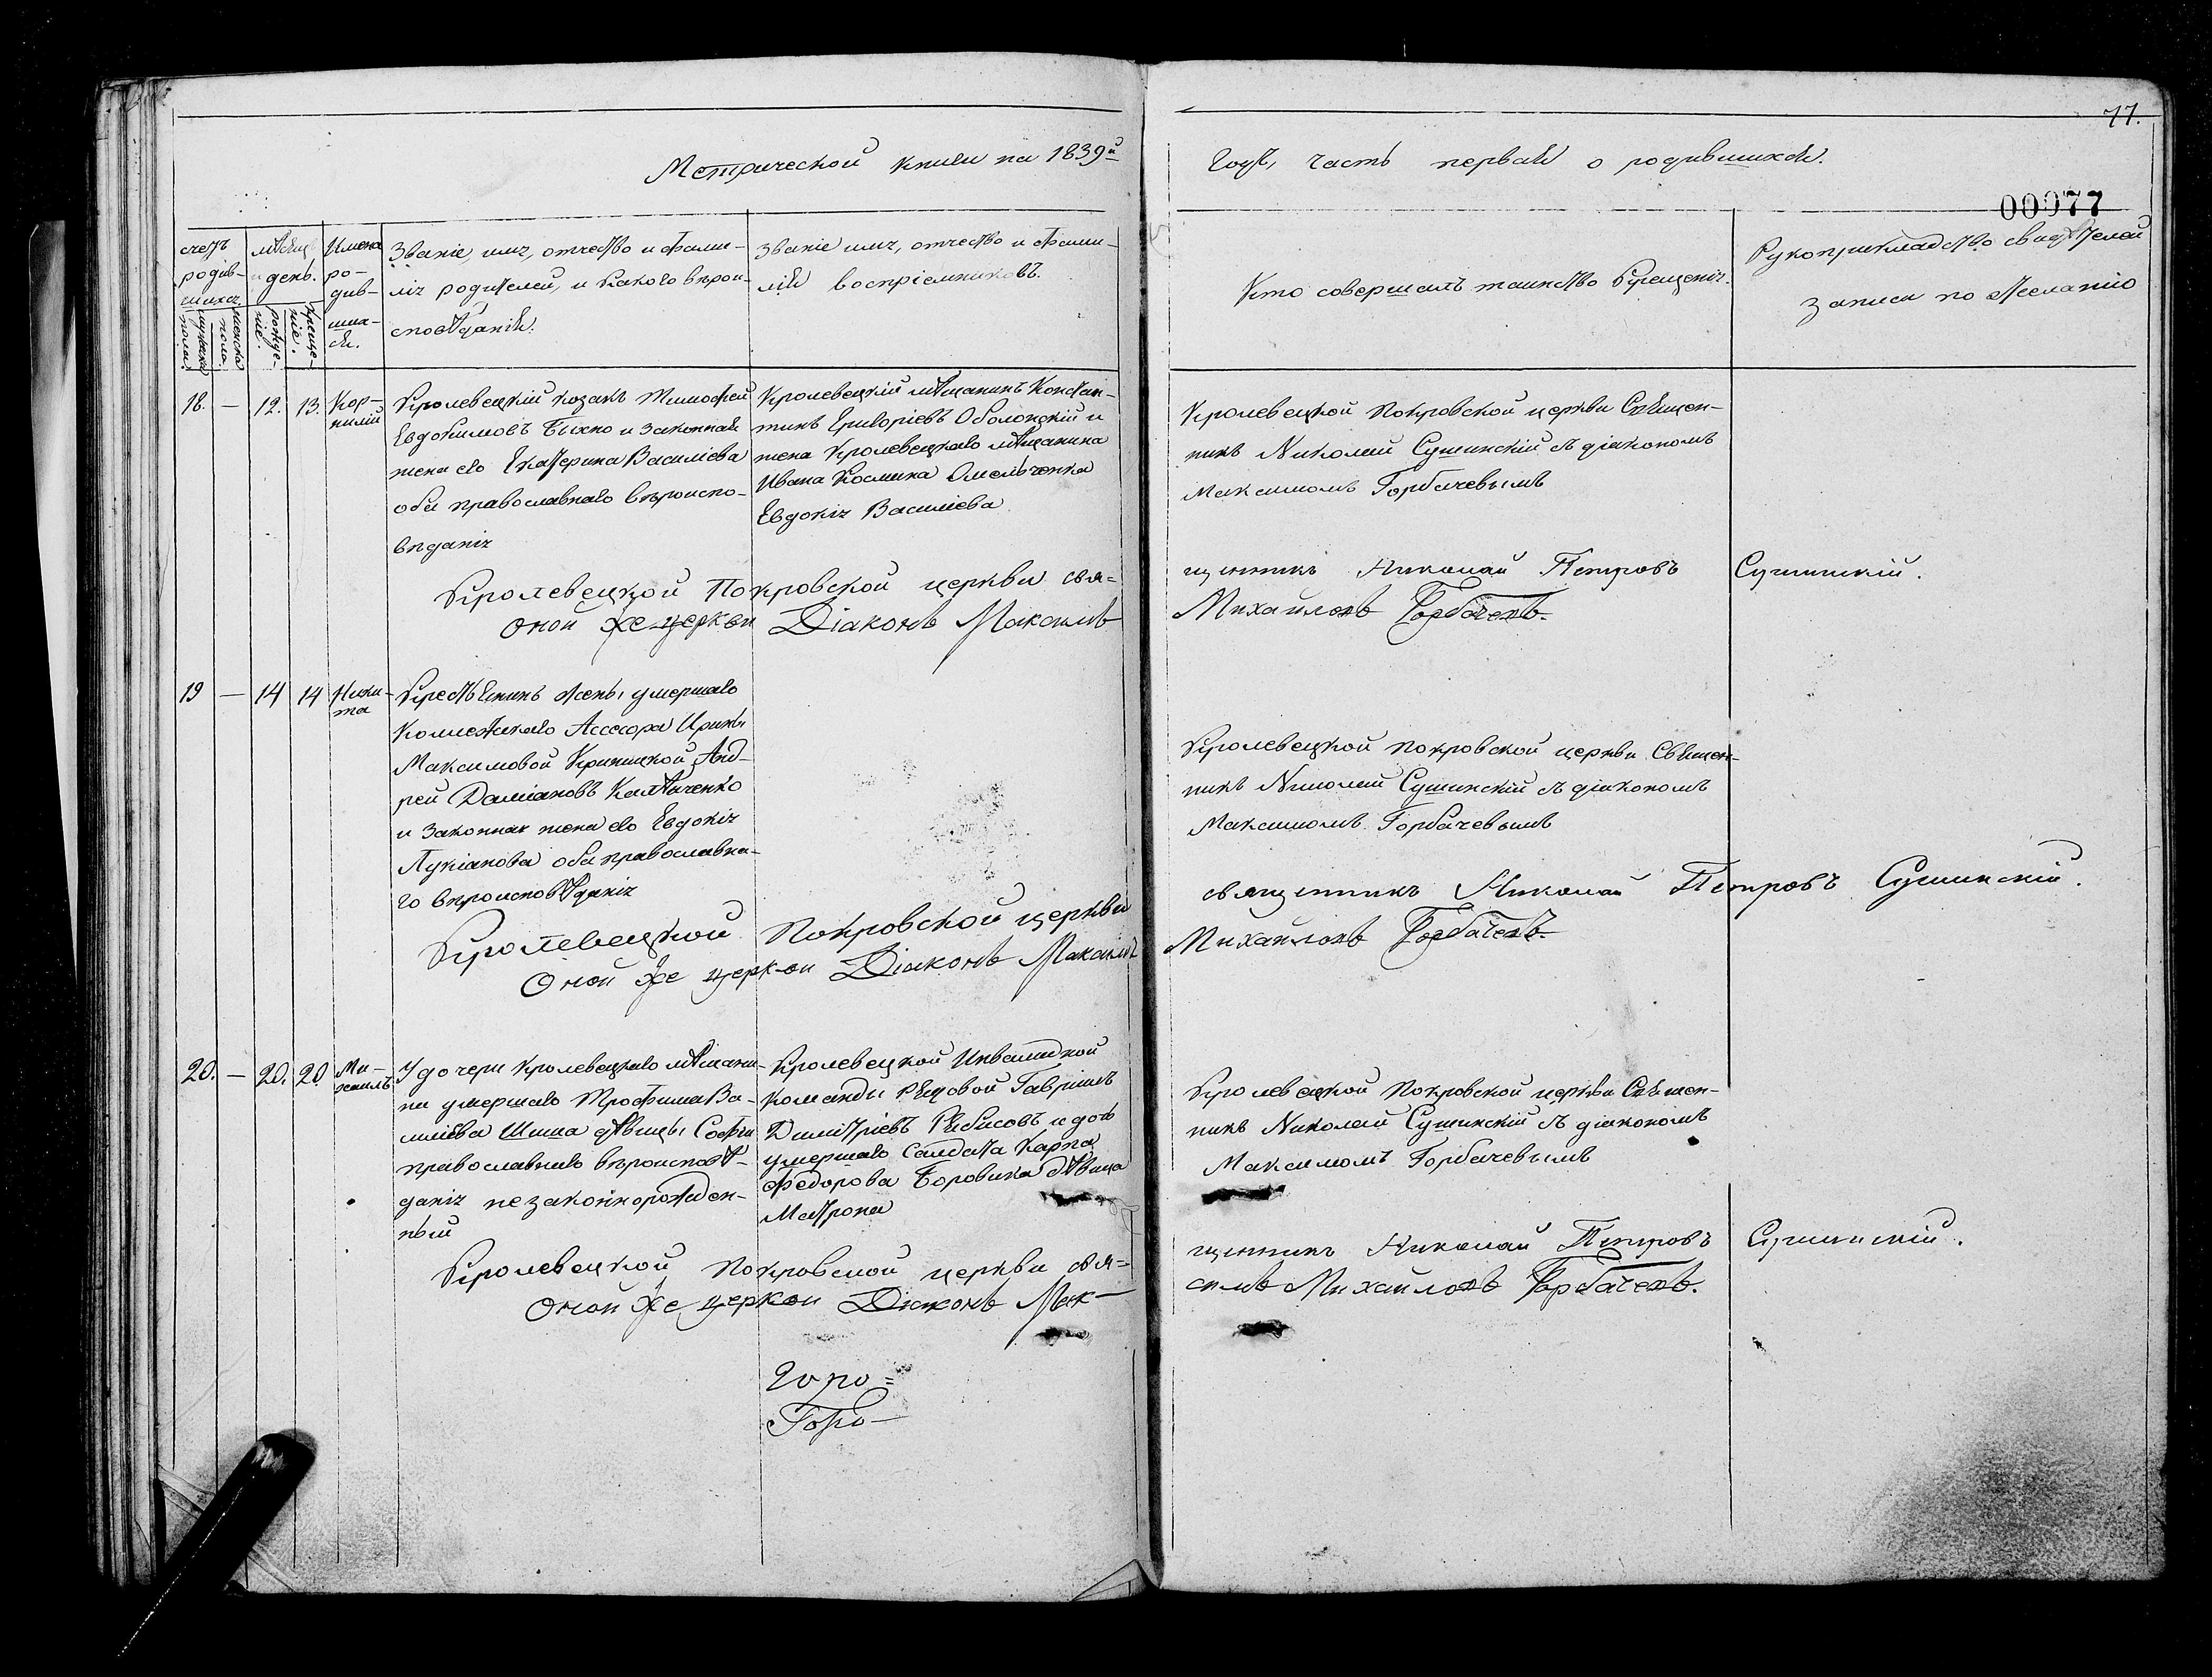 77.
Метрической книги на 1839й
годъ, часть первая о родившихся.
00077
счетъ родив-
шихся.
мужеска пола.
женска пола.
мѣсяцъ и день.
рожде-
ніе.
креще-
ніе.
Имена
ро-
див-
ших-
ся.
Званіе, имя, отчество и фами-
лія родителей, и какого вѣрои-
сповѣданія.
Званіе имя, отчество и фами-
лія воспріемниковъ.
Кто совершалъ таинство крещенія.
Рукоприкладство свидѣтелей
записи по желанію
18. — 12. 13. Кор-
нилій
Кролевецкій козакъ Тимофей
Евдокимовъ Быхно и законная
жена его Екатерина Василіева
оба православнаго вѣроиспо-
вѣданія
Кролевецкій мѣщанинъ Констан-
тинъ Григоріевъ Оболонскій и
жена Кролевецкаго мѣщанина
Ивана Космина Омельченка
Евдокія Василіева
Кролевецкой Покровской церкви Священ-
никъ Николай Сушинскій съ діакономъ
Максимомъ Горбачевымъ
Кролевецкой Покровской церкви свя=
щенникъ Николай Петровъ Сушинскій.
Оной же церкви Діаконъ Максимъ
Михайловъ Горбачевъ.
19 — 14 14 Ники-
та
Крестьянинъ жены умершаго
Коллежскаго Ассесора Ирины
Максимовой Анд-
рей Даміановъ
и законная жена его Евдокія
Лукіанова оба православна-
го вѣроисповѣданія
Кролевецкой Покровской церкви Священ-
никъ Николай Сушинскій съ діакономъ
Максимомъ Горбачевымъ
Кролевецкой Покровской церкви
священникъ Николай Петровъ Сушинскій.
Оной же церкви Діаконъ Максимъ
Михайловъ Горбачевъ.
20. — 20. 20. Ми-
хаилъ
У дочери Кролевецкаго мѣщани-
на умершаго Трофима Ва-
силіева Шиша дѣвицы Софіи
православнаго вѣроисповѣ-
данія незаконнорожден-
ный
Кролевецкой Инвалидной
команды рядовой Гавріилъ
Димитріевъ и дочь
умершаго Салдата Карпа
Федорова Боровика дѣвица
Матрона
Кролевецкой Покровской церкви Священ-
никъ Николай Сушинскій съ діакономъ
Максимомъ Горбачевымъ
Кролевецкой Покровской церкви свя=
щенникъ Николай Петровъ Сушинскій.
Оной же церкви Діаконъ Мак-
симъ Михайловъ Горбачевъ.